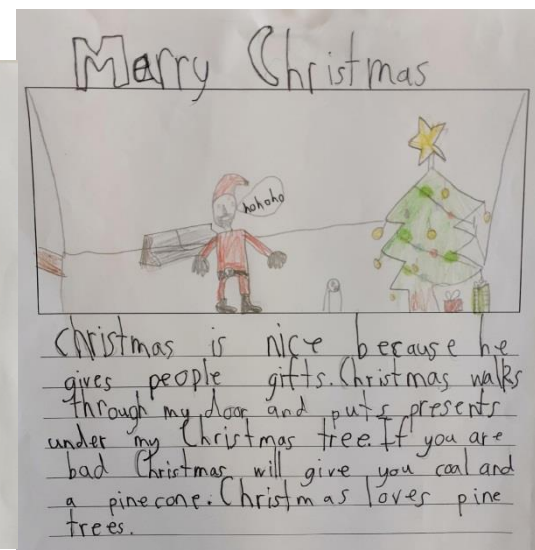 Merry Christmas
hohoho
Christmas is nice because he
gives people gifts. Christmas walks
through my door and puts presents
under my Christmas tree. If you are
bad Christmas will give you coal and
a pinecone. Christmas loves pine
trees.